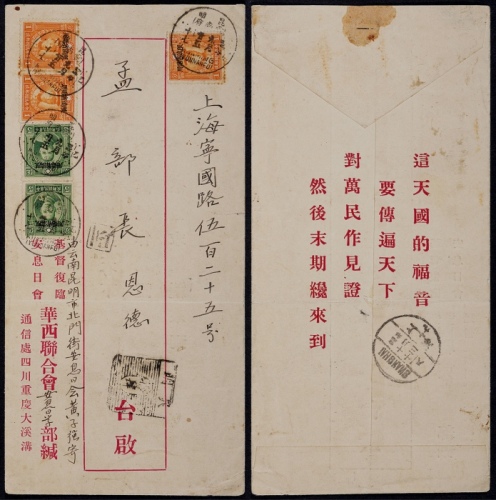 上海寧國路伍百二十五号
孟部長恩德
台啟
由云南昆明市北門街安息日会黄子強寄
基督復臨
安息日會
華西聯合會
部緘
通信處四川重慶大溪溝
這天國的福音
要傳遍天下
對萬民作見證
然後末期纔來到
SHANGHAI